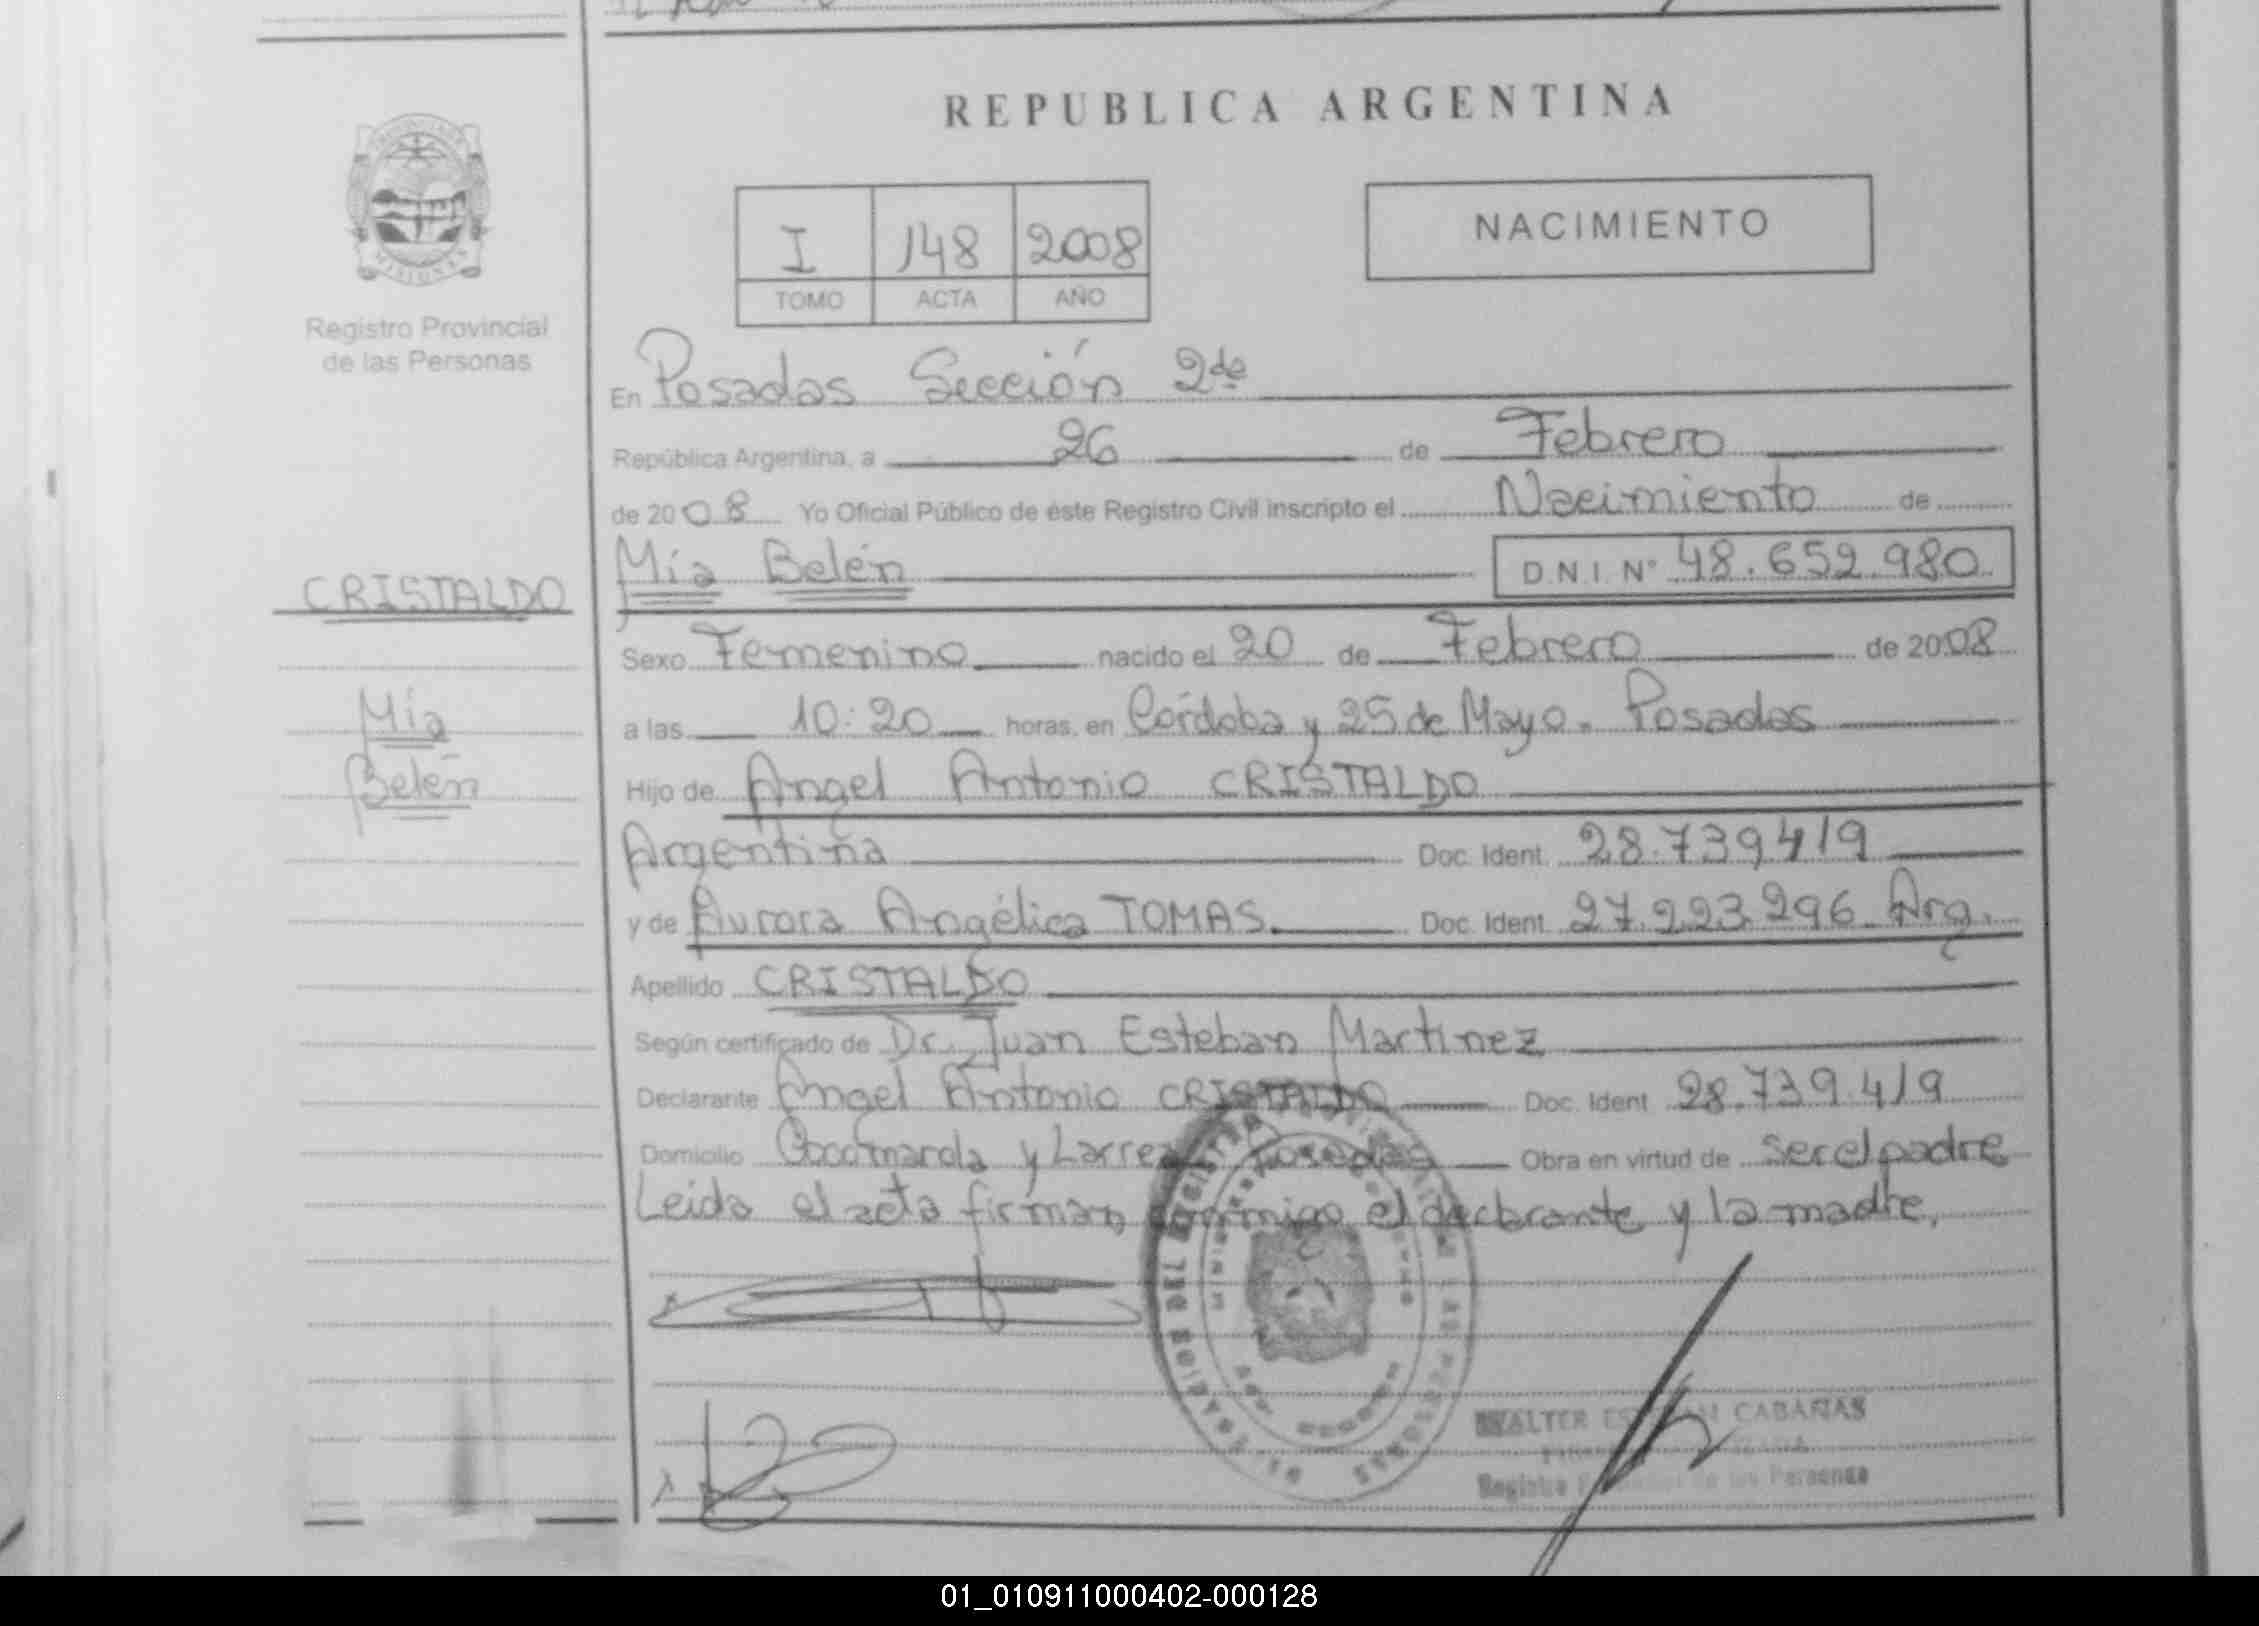 REPUBLICA ARGENTINA
MISIONES
Registro Provincial
de las Personas
I 148 2008
TOMO ACTA AÑO
NACIMIENTO
En Posadas Sección 2da
República Argentina, a 26 de Febrero
de 2008 Yo Oficial Público de éste Registro Civil inscripto el Nacimiento de
CRISTALDO
Mía Belén D.N.I. Nº 48.652.980
Sexo Femenino nacido el 20 de Febrero de 2008
Mía
Belén
a las 10:20 horas, en Córdoba y 25 de Mayo. Posadas
Hijo de Angel Antonio CRISTALDO
Argentina Doc. Ident. 28.739.419
y de Aurora Angélica TOMAS. Doc. Ident. 27.223.296 Arg.
Apellido CRISTALDO
Según certificado de Dr. Juan Esteban Martinez
Declarante Angel Antonio CRISTALDO Doc. Ident. 28.739.419
Domicilio Cocomarola y Larrea Posadas Obra en virtud de ser el padre
Leida el acta firman conmigo el declarante y la madre.
WALTER CABAÑAS
Registro de las Personas
01_010911000402-000128